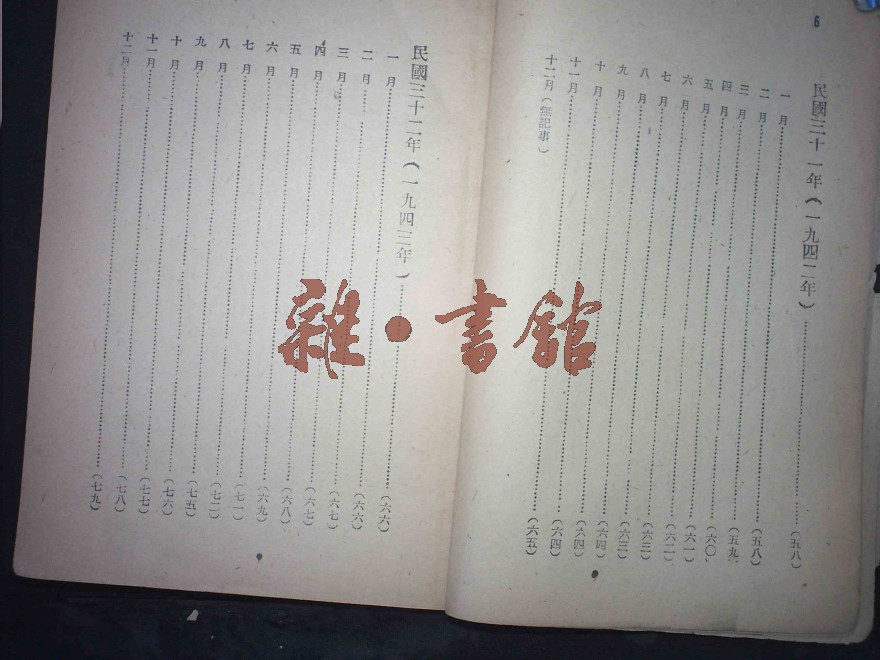 6
民國三十一年（一九四二年）……（五八）
一月……（五八）
二月……（五九）
三月……（六〇）
四月……（六一）
五月……（六二）
六月……（六三）
七月……（六三）
八月……（六四）
九月……（六四）
十月……（六四）
十一月……（六五）
十二月（無記事）
民國三十二年（一九四三年）……（六六）
一月……（六六）
二月……（六七）
三月……（六七）
四月……（六八）
五月……（六九）
六月……（七一）
七月……（七二）
八月……（七五）
九月……（七六）
十月……（七七）
十一月……（七八）
十二月……（七九）
雜·書館